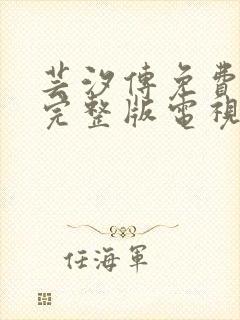 芸汐傳免費
完整版電視
任海軍